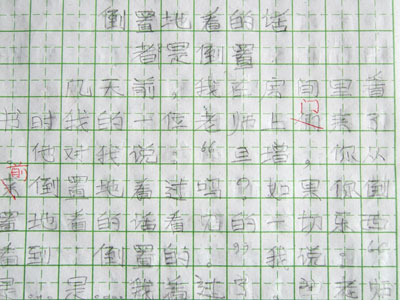 倒置地看的话
都是倒置
几天前，我在房间里看
书时我的一位老师上门来了
他对我说：“主塔，你从
前
来倒置地看过吗？如果你倒
置地看的话看见的一切东西
看到 倒置的”我说：“
是 是 我看过了，”老师